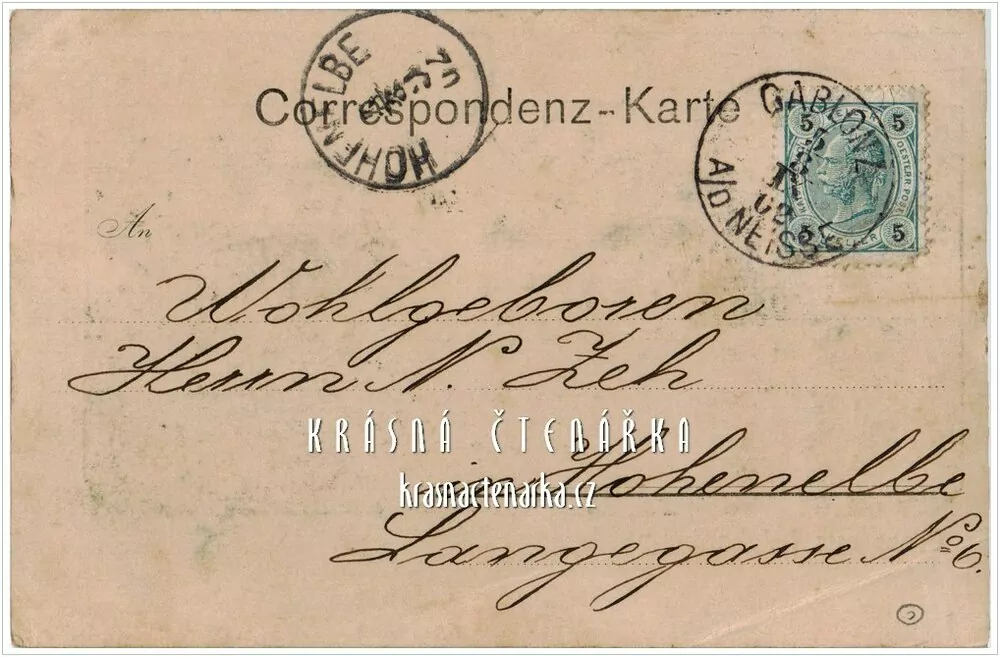 Correspondenz-Karte
HOHENELBE
GABLONZ
A/D NEISSE
5 5
5 5
An
Wohlgeboren
Herrn N. Zeh
KRÁSNÁ ČTENÁŘKA
in Hohenelbe
krasnactenarka.cz
Langegasse No 6.
c